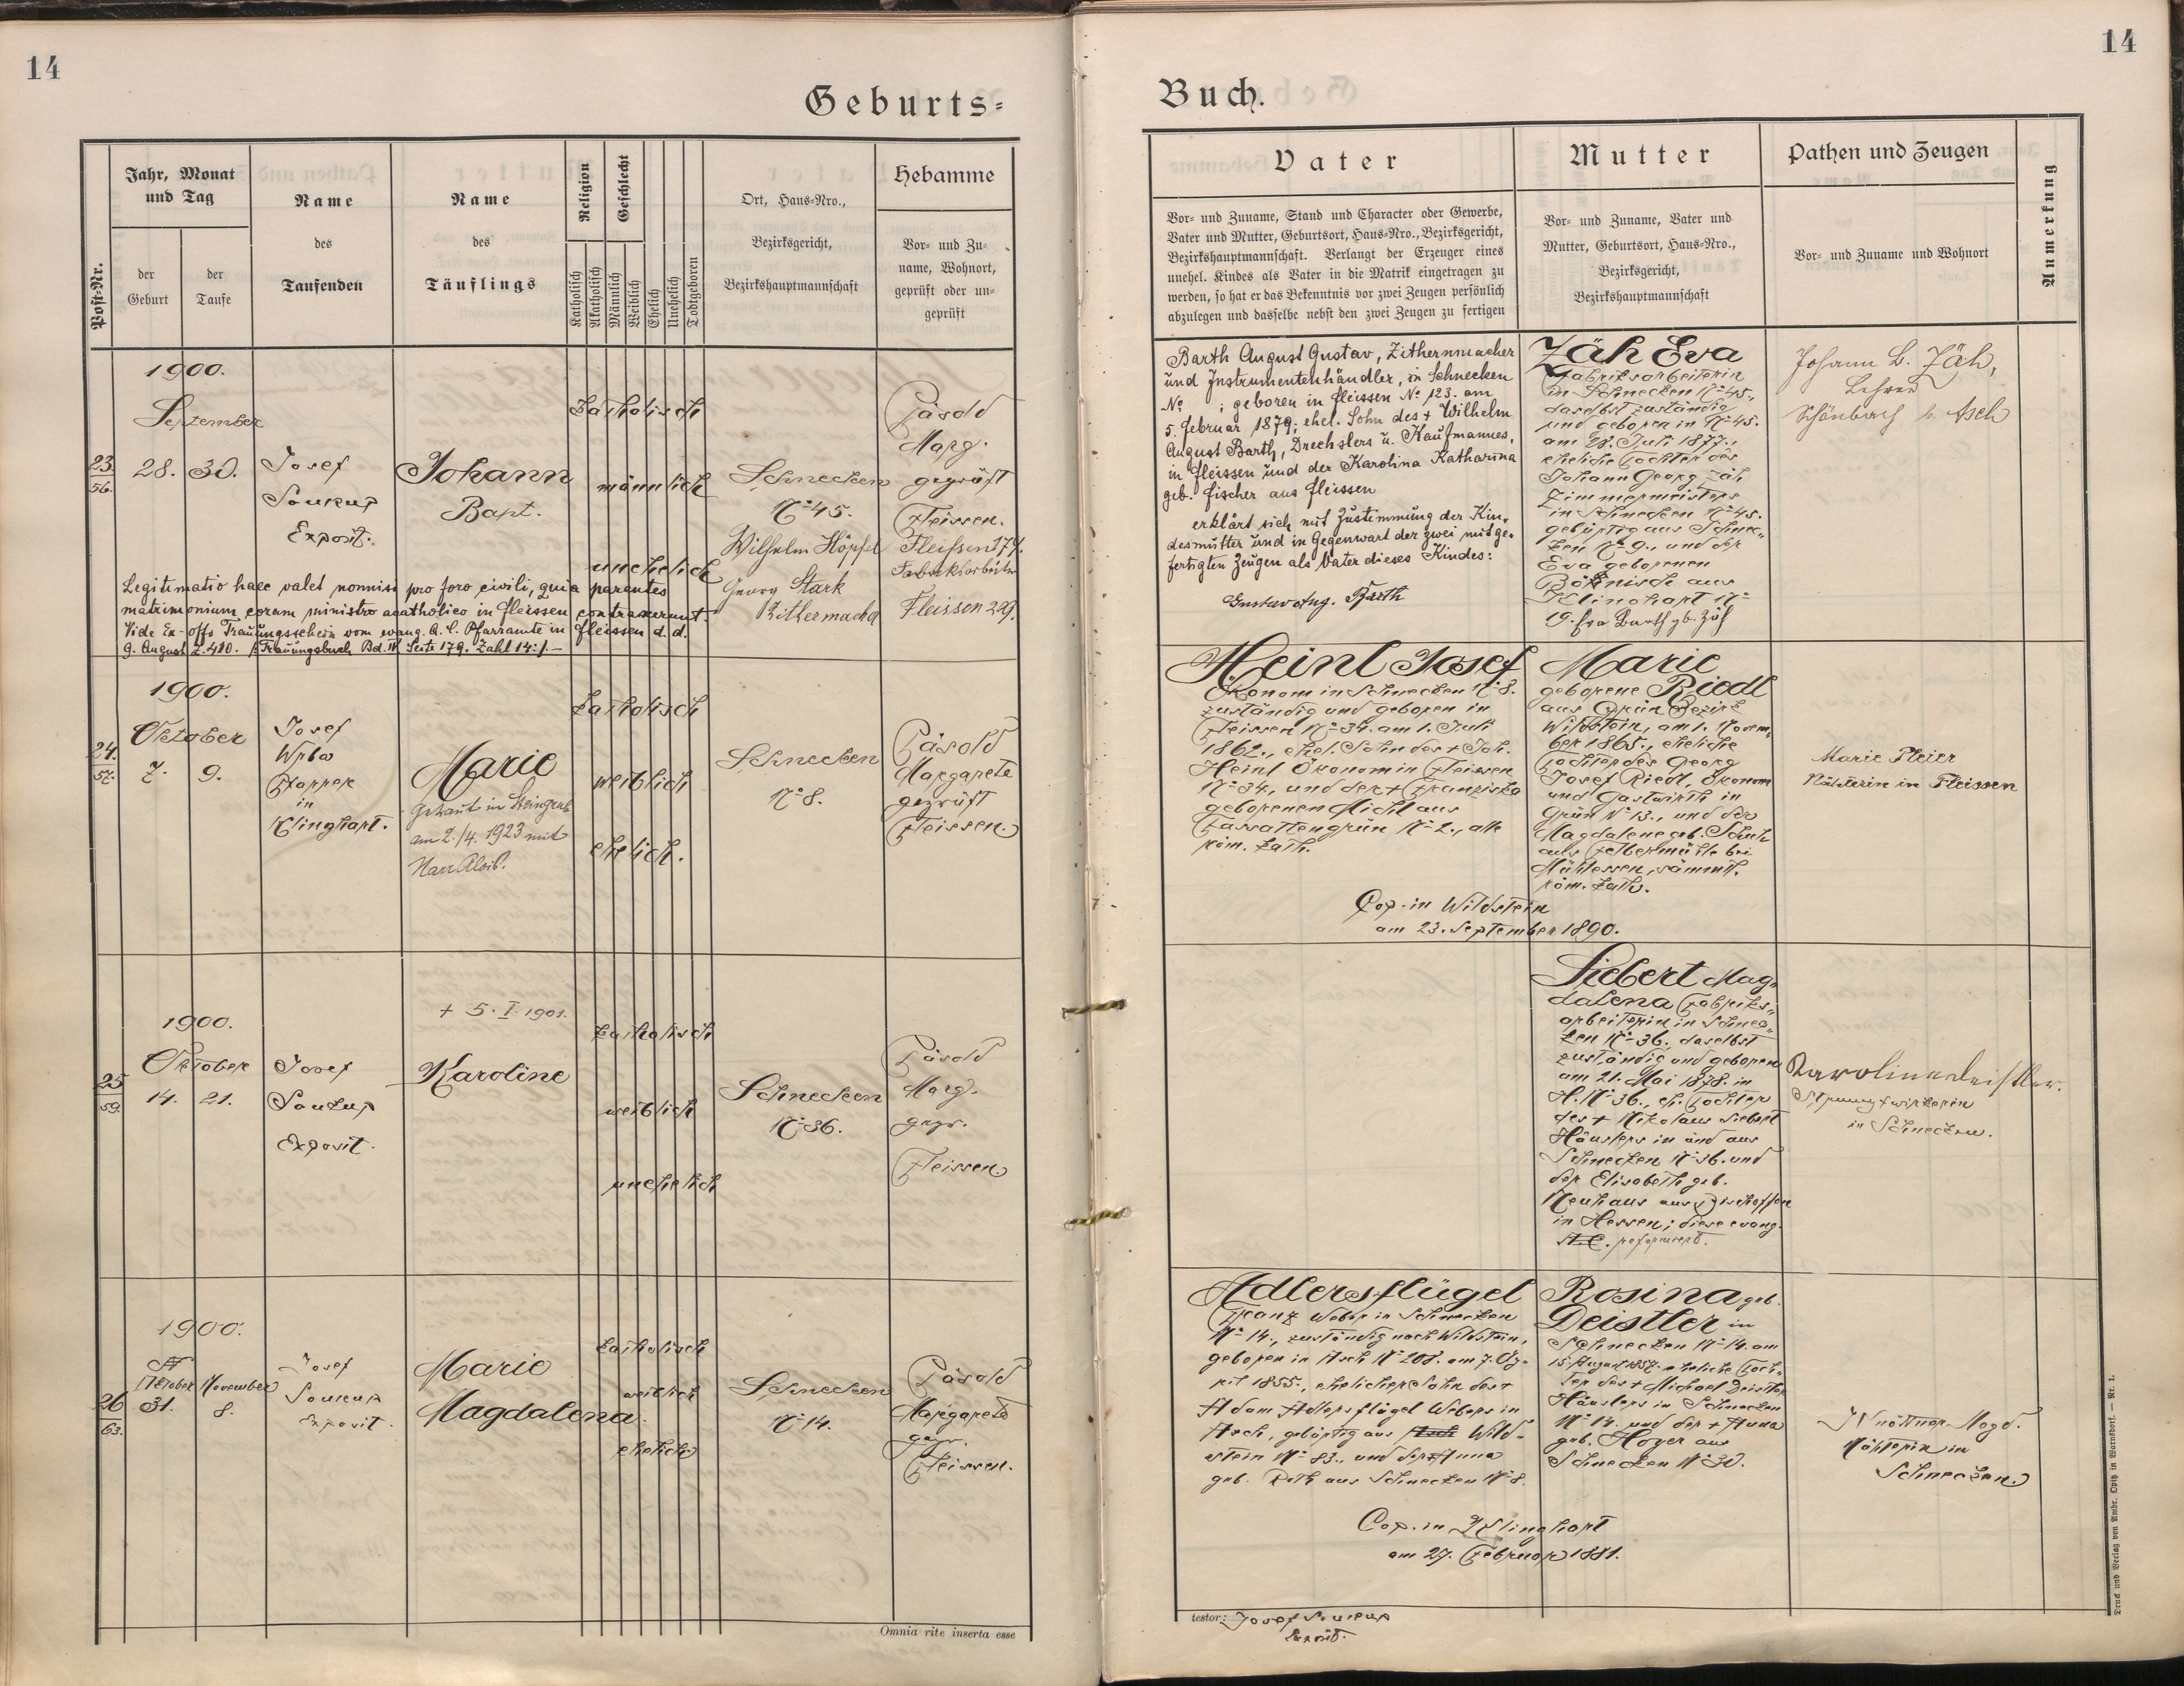 14
Geburts=
Post-Nr.
Jahr, Monat
und Tag
der
Geburt
der
Taufe
Name
des
Taufenden
Name
des
Täuflings
Religion
Katholisch
Akatholisch
Geschlecht
Männlich
Weiblich
Ehelich
Unehelich
Todtgeboren
Ort, Haus-Nro.,
Bezirksgericht,
Bezirkshauptmannschaft
Hebamme
Vor- und Zu-
name, Wohnort,
geprüft oder un-
geprüft
23.
56.
1900.
September
28. 30.
Josef
Soukup
Exposit.
Johann
Bapt.
katholisch
männlich
unehelich
Schnecken
No 45.
Wilhelm Höpfel
Georg Stark
Zithermacher
Päsold
Marg.
geprüft
Fleissen.
Fleissen 174.
Fabriksarbeiter
Fleissen 229.
Legitimatio haec valet nonnisi pro foro civili, quia parentes
matrimonium coram ministro acatholico in Fleissen contraxerunt.
Vide Ex-offo Trauungsschein vom evang. A. C. Pfarramte in Fleissen d. d.
9. August Z. 410. /: Trauungsbuch Bd. IV. Seite 179. Zahl 14 :/.—
24.
57.
1900.
Oktober
7. 9.
Josef
Wrba
Pfarrer
in
Klinghart.
Marie
Getraut in Steingrub
am 2./4. 1923 mit
Narr Alois.
katholisch
weiblich
ehelich.
Schnecken
No 8.
Päsold
Margarete
geprüft
Fleissen.
25
59.
1900.
Oktober
14. 21.
Josef
Soukup
Exposit.
+ 5. I. 1901.
Karoline
katholisch
weiblich
unehelich
Schnecken
No 36.
Päsold
Marg.
gepr.
Fleissen.
26
63.
1900.
Oktober November
31. 8.
Josef
Soukup
Exposit.
Marie
Magdalena.
katholisch
weiblich
ehelich
Schnecken
No 14.
Päsold
Margarete
gepr.
Fleissen.
Omnia rite inserta esse
14
Buch.
Vater
Vor- und Zuname, Stand und Character oder Gewerbe,
Vater und Mutter, Geburtsort, Haus-Nro., Bezirksgericht,
Bezirkshauptmannschaft. Verlangt der Erzeuger eines
unehel. Kindes als Vater in die Matrik eingetragen zu
werden, so hat er das Bekenntnis vor zwei Zeugen persönlich
abzulegen und dasselbe nebst den zwei Zeugen zu fertigen
Mutter
Vor- und Zuname, Vater und
Mutter, Geburtsort, Haus-Nro.,
Bezirksgericht,
Bezirkshauptmannschaft
Pathen und Zeugen
Vor- und Zuname und Wohnort
Anmerkung
Barth August Gustav, Zithernmacher
und Instrumentenhändler, in Schnecken
No ; geboren in Fleissen No 123. am
5. Februar 1879; ehel. Sohn des + Wilhelm
August Barth, Drechslers u. Kaufmannes,
in Fleissen und der Karolina Katharina
geb. Fischer aus Fleissen
erklärt sich mit Zustimmung der Kin-
desmutter und in Gegenwart der zwei mitge-
fertigten Zeugen als Vater dieses Kindes:
Gustav Aug. Barth
Zäh Eva
Fabriksarbeiterin
in Schnecken No 45.,
daselbst zuständig
und geboren in No 45.
am 28. Juli 1877.,
eheliche Tochter des
Johann Georg Zäh
Zimmermeisters
in Schnecken No 45.
gebürtig aus Schnec-
ken No 9., und der
Eva geborenen
Böhnisch aus
Klinghart No
19. Eva Barth gb. Zäh
Johann B. Zäh,
Lehrer
Schönbach b. Asch
Heinl Josef
Ökonom in Schnecken No 8.
zuständig und geboren in
Fleissen No 34. am 1. Juli
1862., ehel. Sohn des + Joh.
Heinl Ökonom in Fleissen
No 34., und der + Franziska
geborenen Michl aus
Fassattengrün No 2., alle
röm. kath.
Marie
geborene Riedl
aus Grün Bezirk
Wildstein, am 1. Novem-
ber 1865., eheliche
Tochter des Georg
Josef Riedl, Ökonom
und Gastwirth in
Grün No 13., und der
Magdalene geb. Schuh
aus Felbermühle bei
Mühlessen, sämmtl.
röm. kath.
Cop. in Wildstein
am 23. September 1890.
Marie Pleier
Nähterin in Fleissen
Siebert Mag-
dalena Fabriks-
arbeiterin in Schnec-
ken No 36., daselbst
zuständig und geboren
am 21. Mai 1878. in
H. No 36., eh. Tochter
des + Nikolaus Siebert
Häuslers in und aus
Schnecken No 36. und
der Elisabeth geb.
Neuhaus aus Bischoffen
in Hessen; diese evang.
A. C. reformiert.
Karolina Deistler.
Strumpfwirkerin
in Schnecken.
Adlersflügel
Franz Weber in Schnecken
No 14., zuständig nach Wildstein,
geboren in Asch No 208. am 7. Ap-
ril 1855., ehelicher Sohn des +
Adam Adlersflügel Webers in
Asch, gebürtig aus Asch Wild-
stein No 83., und der + Anna
geb. Roth aus Schnecken No 8.
Rosina geb.
Deistler in
Schnecken No 14. am
15. August 1857. eheliche Toch-
ter des + Michael Deistler
Häuslers in Schnecken
No 14. und der + Anna
geb. Hoyer aus
Schnecken No 30.
Cop. in Klinghart
am 27. Februar 1881.
Knöttner Magd.
Nähterin in
Schnecken.
testor: Josef Soukup
Exposit.
Druck und Verlag von Ambr. Opitz in Warnsdorf. — Nr. 1.